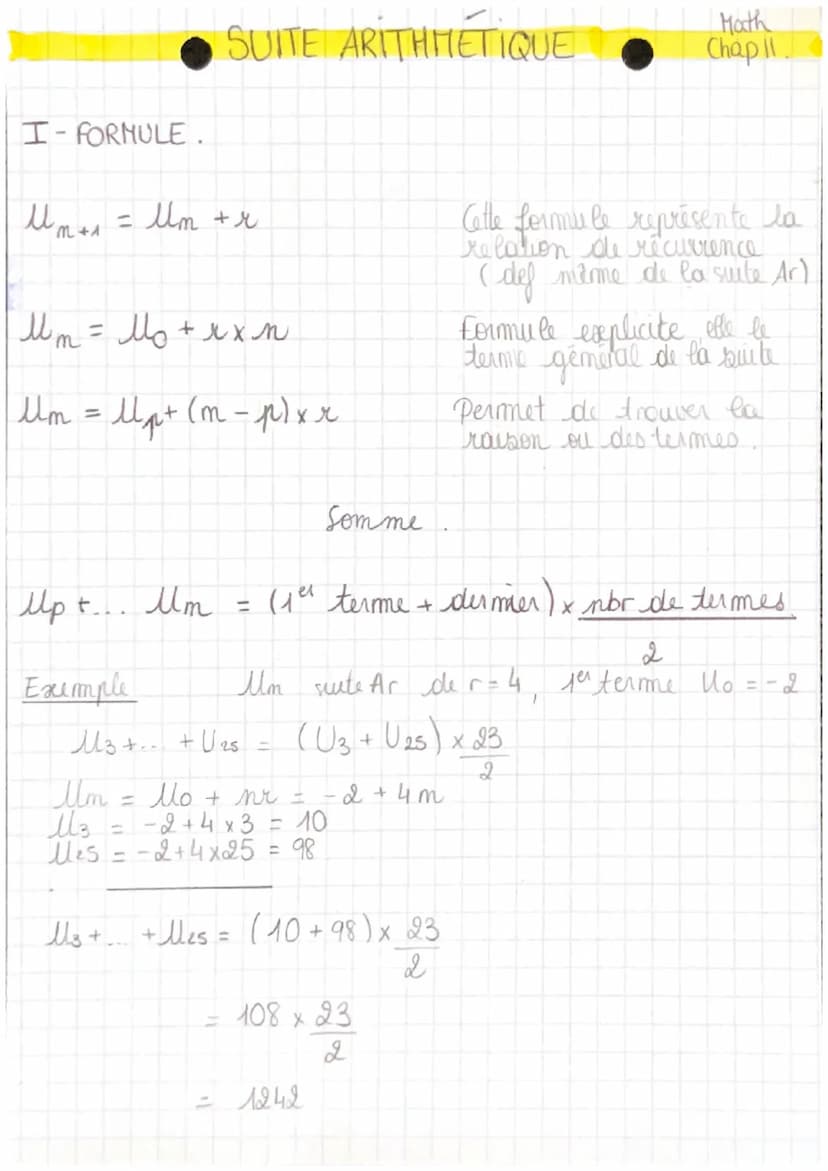 SUITE ARITHMÉTIQUE
Math
Chap 11.
I - FORMULE.
Un+1 = Un + r
Cette formule représente la
relation de récurrence
(def même de la suite Ar)
Un = U0 + r x n
Formule explicite, elle le
terme général de la suite
Un = Up + (n - p) x r
Permet de trouver la
raison ou des termes.
Somme.
Up + ... Un = (1er terme + dernier) x nbr de termes / 2
Exemple Un suite Ar de r = 4, 1er terme U0 = -2
U3 + ... + U25 = (U3 + U25) x 23/2
Un = U0 + nr = -2 + 4n
U3 = -2 + 4 x 3 = 10
U25 = -2 + 4 x 25 = 98
U3 + ... + U25 = (10 + 98) x 23/2
= 108 x 23/2
= 1242